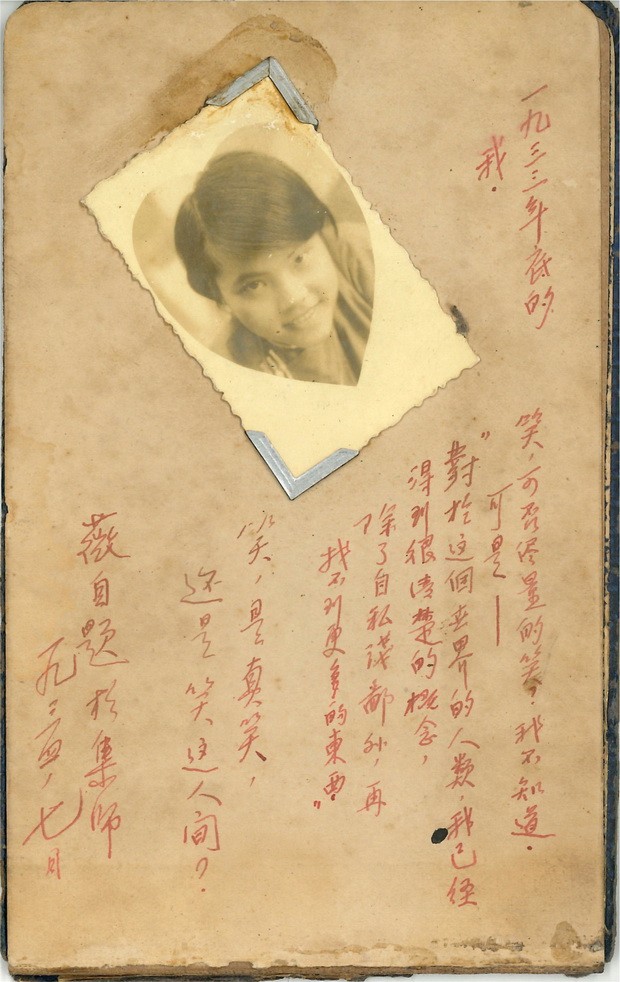 一九三三年底的
我.
笑,可否尽量的笑?我不知道.
可是——
"對於这個世界的人類,我已经
得到很清楚的概念,
除了自私淺鄙外,再
找不到更多的東西"
笑,是真笑,
还是笑这人间?
薇自题於集师
一九三五,七月